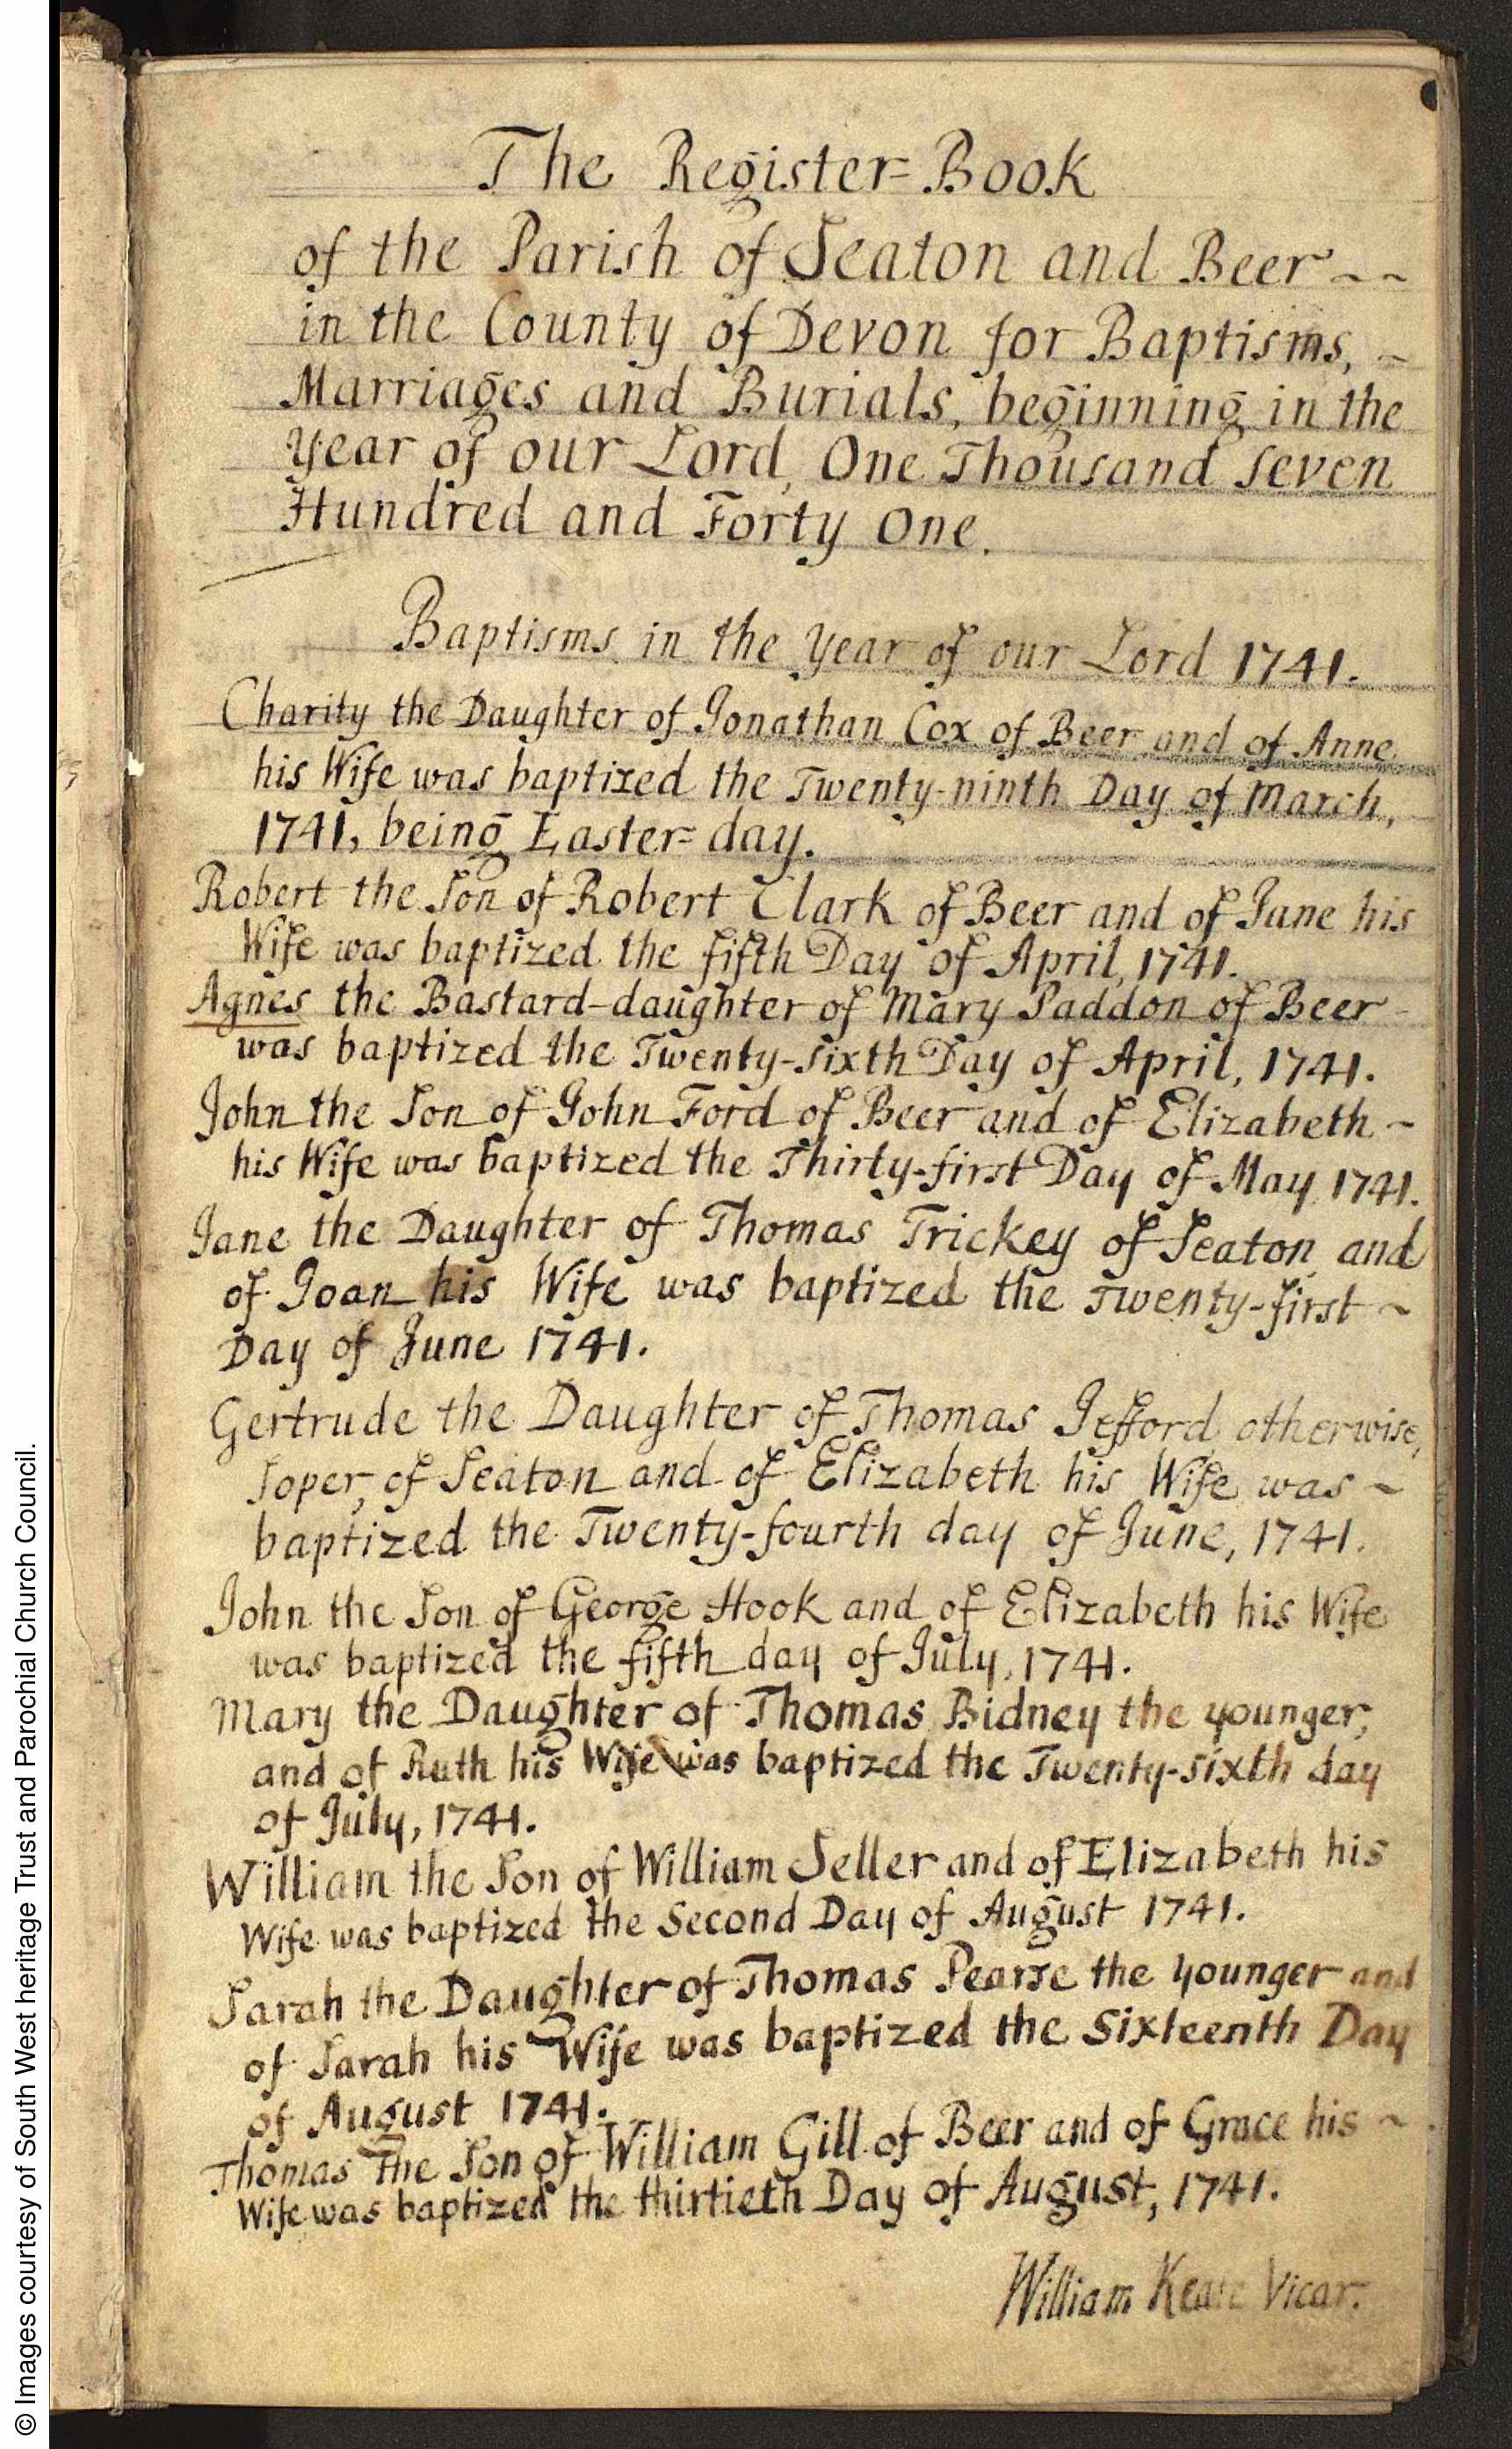 The Register=Book
of the Parish of Seaton and Beer~~
in the County of Devon for Baptisms, ~
Marriages and Burials, beginning in the
Year of our Lord, One Thousand Seven
Hundred and Forty One.
Baptisms in the Year of our Lord 1741.
Charity the Daughter of Jonathan Cox of Beer and of Anne
his Wife was baptized the Twenty-ninth Day of March,
1741, being Easter=day.
Robert the Son of Robert Clark of Beer and of Jane his
Wife was baptized the fifth Day of April, 1741.
Agnes the Bastard-daughter of Mary Paddon of Beer
was baptized the Twenty-sixth Day of April, 1741.
John the Son of John Ford of Beer and of Elizabeth ~
his Wife was baptized the Thirty-first Day of May, 1741.
Jane the Daughter of Thomas Trickey of Seaton and
of Joan his Wife was baptized the Twenty-first ~
Day of June 1741.
Gertrude the Daughter of Thomas Jefford otherwise,
Soper, of Seaton and of Elizabeth his Wife was ~
baptized the Twenty-fourth day of June, 1741.
John the Son of George Hook and of Elizabeth his Wife
was baptized the fifth day of July, 1741.
Mary the Daughter of Thomas Bidney the younger,
and of Ruth his Wife was baptized the Twenty-sixth day
of July, 1741.
William the Son of William Seller and of Elizabeth his
Wife was baptized the Second Day of August 1741.
Sarah the Daughter of Thomas Pearse the younger and
of Sarah his Wife was baptized the Sixteenth Day
of August 1741.
Thomas the Son of William Gill of Beer and of Grace his ~
Wife was baptized the thirtieth Day of August, 1741.
William Vicar.
© Images courtesy of South West heritage Trust and Parochial Church Council.